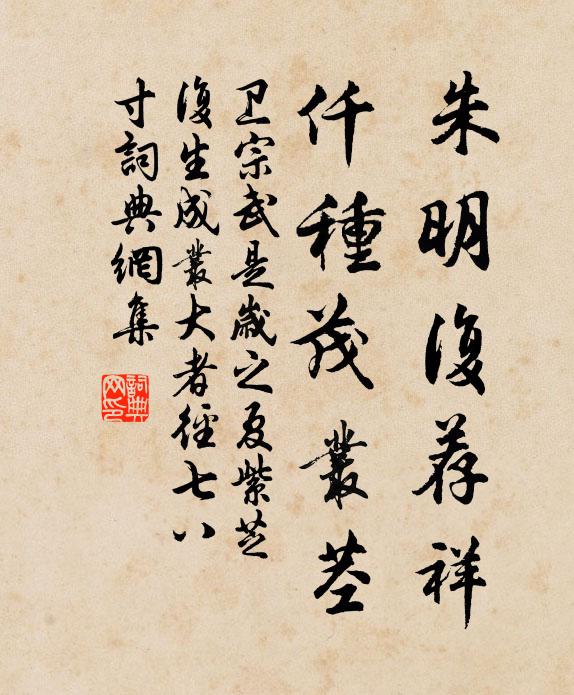 朱明復荐祥
仟種茂叢茎
卫宗武是歲之夏紫芝
復生成叢大者徑七八
寸詞典網集
詞典网印